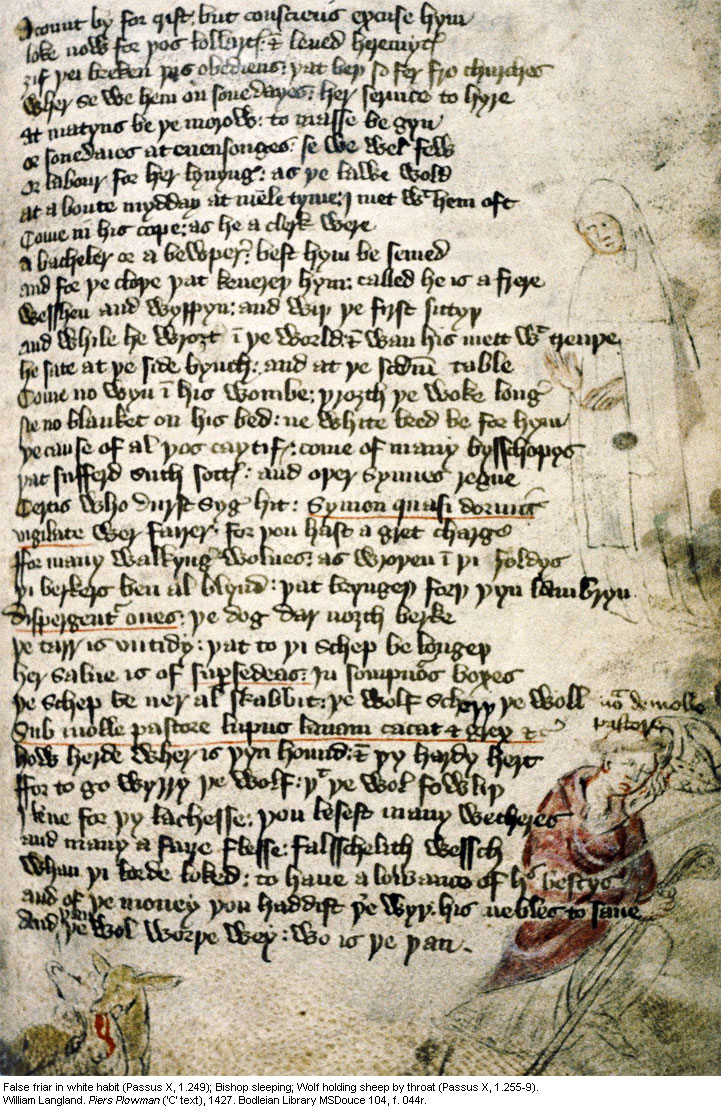 I count by for gift: but consciens excuse hym
loke now for þos lollares: & lewed heremytes
ȝif þei breken þis obediens: þat beþ so fer fro churches
Wher se we hem on sonedayes: her seruice to hyre
At matyns be þe morow: to masse be gyn
or sonedaies at euensonges: se we wel few
Or labour for her lyuyng: as þe lawe wold
At a boute mydday at mele tyme: I met wt hem oft
Come in his cope: as he a clerk were
A bacheler or a bewper: best hym be semed
And for þe cloþe þat keuereþ hym: called he is a frere
Wesshen and wyppyn: and wiþ þe first sittyþ
And while he wrozt i þe world: & wan his mett wt trenþe
he sate at þe side bynch: and at þe secdm table
Come no wyn i his wombe: þrozth þe woke long
ne no blanket on his bed: ne white bred be for hym
þe cause of al þos caytifs: come of many bysschopys
þat sufferd such sottes: and oþer synnes regne
Certis who durst syg hit: Symon quasi dormis
vigilate wer fairer: for þou hast a gret charge
ffor many walkyng wolues: as wroþen i þi foldys
þi berkers ben al blynd: þat bryngeþ forþ þyn lambryn
Dispergent ones: þe dog dar nozth berke
þe tarr is vntidy: þat to þi schep be longeþ
her salue is of supsedeas: In sompnos boxes
þe schep be ner al skabbit: þe wolf scheþþ þe woll
nota de molle
pastore
Sub molle pastore lupus lanam cacat & grex &c
how herde wher is þyn hound: & þy hardy hert
ffor to go wyrry þe wolf: þt þe wol fowliþ
I leue for þy lachesse: þou lesest many wetheres
and many a faire flesse: falsschelith wessch
Whan þi lorde loked: to haue alowance of hs bestys
and of þe money þou haddist þer wyþ: his mebles to saue
And þe wol worþe wey: wo is þe þan.
False friar in white habit (Passus X, 1.249); Bishop sleeping; Wolf holding sheep by throat (Passus X, 1.255-9).
William Langland. Piers Plowman ('C' text), 1427. Bodleian Library MSDouce 104, f. 044r.